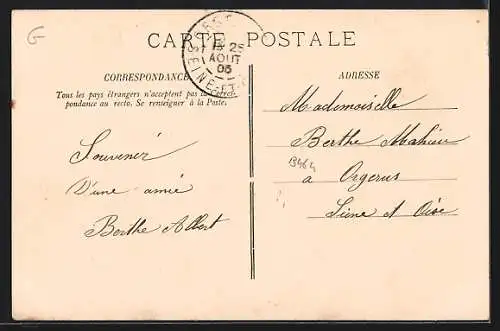 CARTE POSTALE
25
AOUT
05
SEINE-ET-
CORRESPONDANCE
Tous les pays étrangers n'acceptent pas la Corres-
pondance au recto. Se renseigner à la Poste.
ADRESSE
Souvenir
D'une amie
Berthe Albert
Mademoiselle
Berthe Mahieu
a Orgerus
Seine et Oise